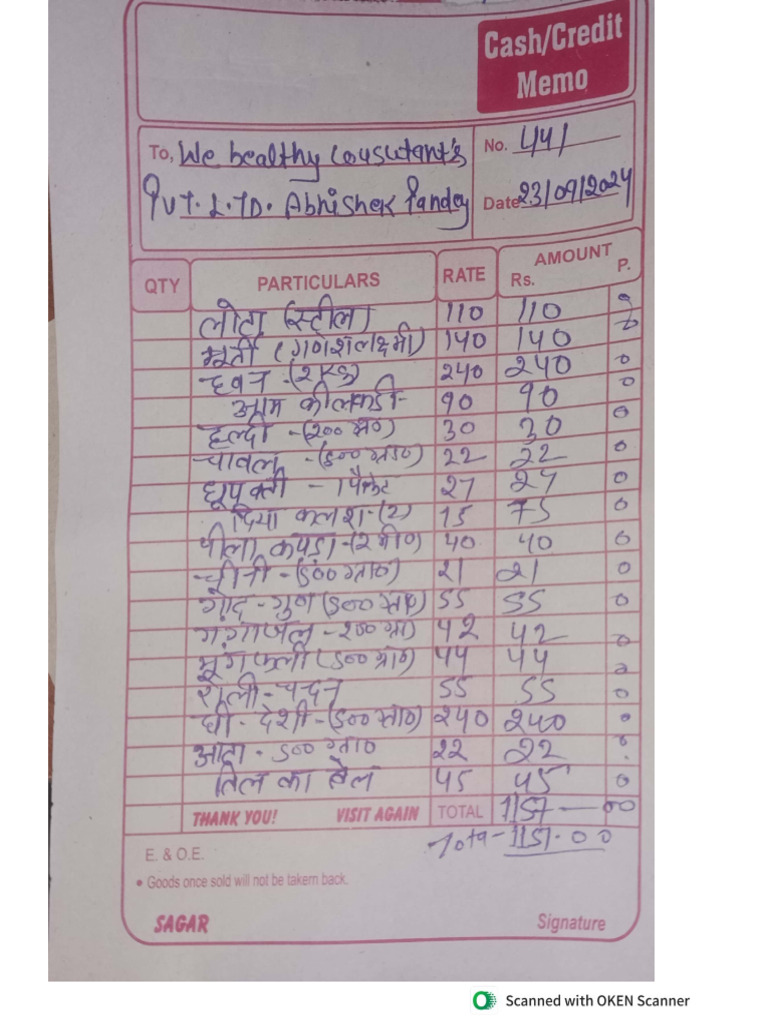 Cash/Credit
Memo
To, We healthy Cousutant's No. 441
Pvt. L.TD. Abhishek Pandey Date 23/09/2024
QTY PARTICULARS RATE AMOUNT Rs. P.
लोटा (स्टील) 110 110 0
मूर्ती (गणेशलक्ष्मी) 140 140 0
हवन -(2 KG) 240 240 0
आम की लकडी- 90 90 0
हल्दी -(200 ग्रा०) 30 30 0
चावल -(500 ग्रा०) 22 22 0
धूपबत्ती - 1 पैकेट 27 27 0
दिया कलश-(2) 15 75 0
पीला कपडा-(2 मी०) 40 40 0
चीनी -(500 ग्रा०) 21 21 0
गोंद - गुण (500 ग्रा०) 55 55 0
गंगाजल - 200 ग्रा 42 42 0
मूंगफली (500 ग्रा०) 44 44 0
रोली - चंदन 55 55 0
घी - देशी -(500 ग्रा०) 240 240 0
आटा - 500 ग्रा० 22 22 0
तिल का तेल 45 45 0
THANK YOU! VISIT AGAIN TOTAL 1157 — 00
Tota - 1151.00
E. & O.E.
• Goods once sold will not be takern back.
SAGAR Signature
Scanned with OKEN Scanner